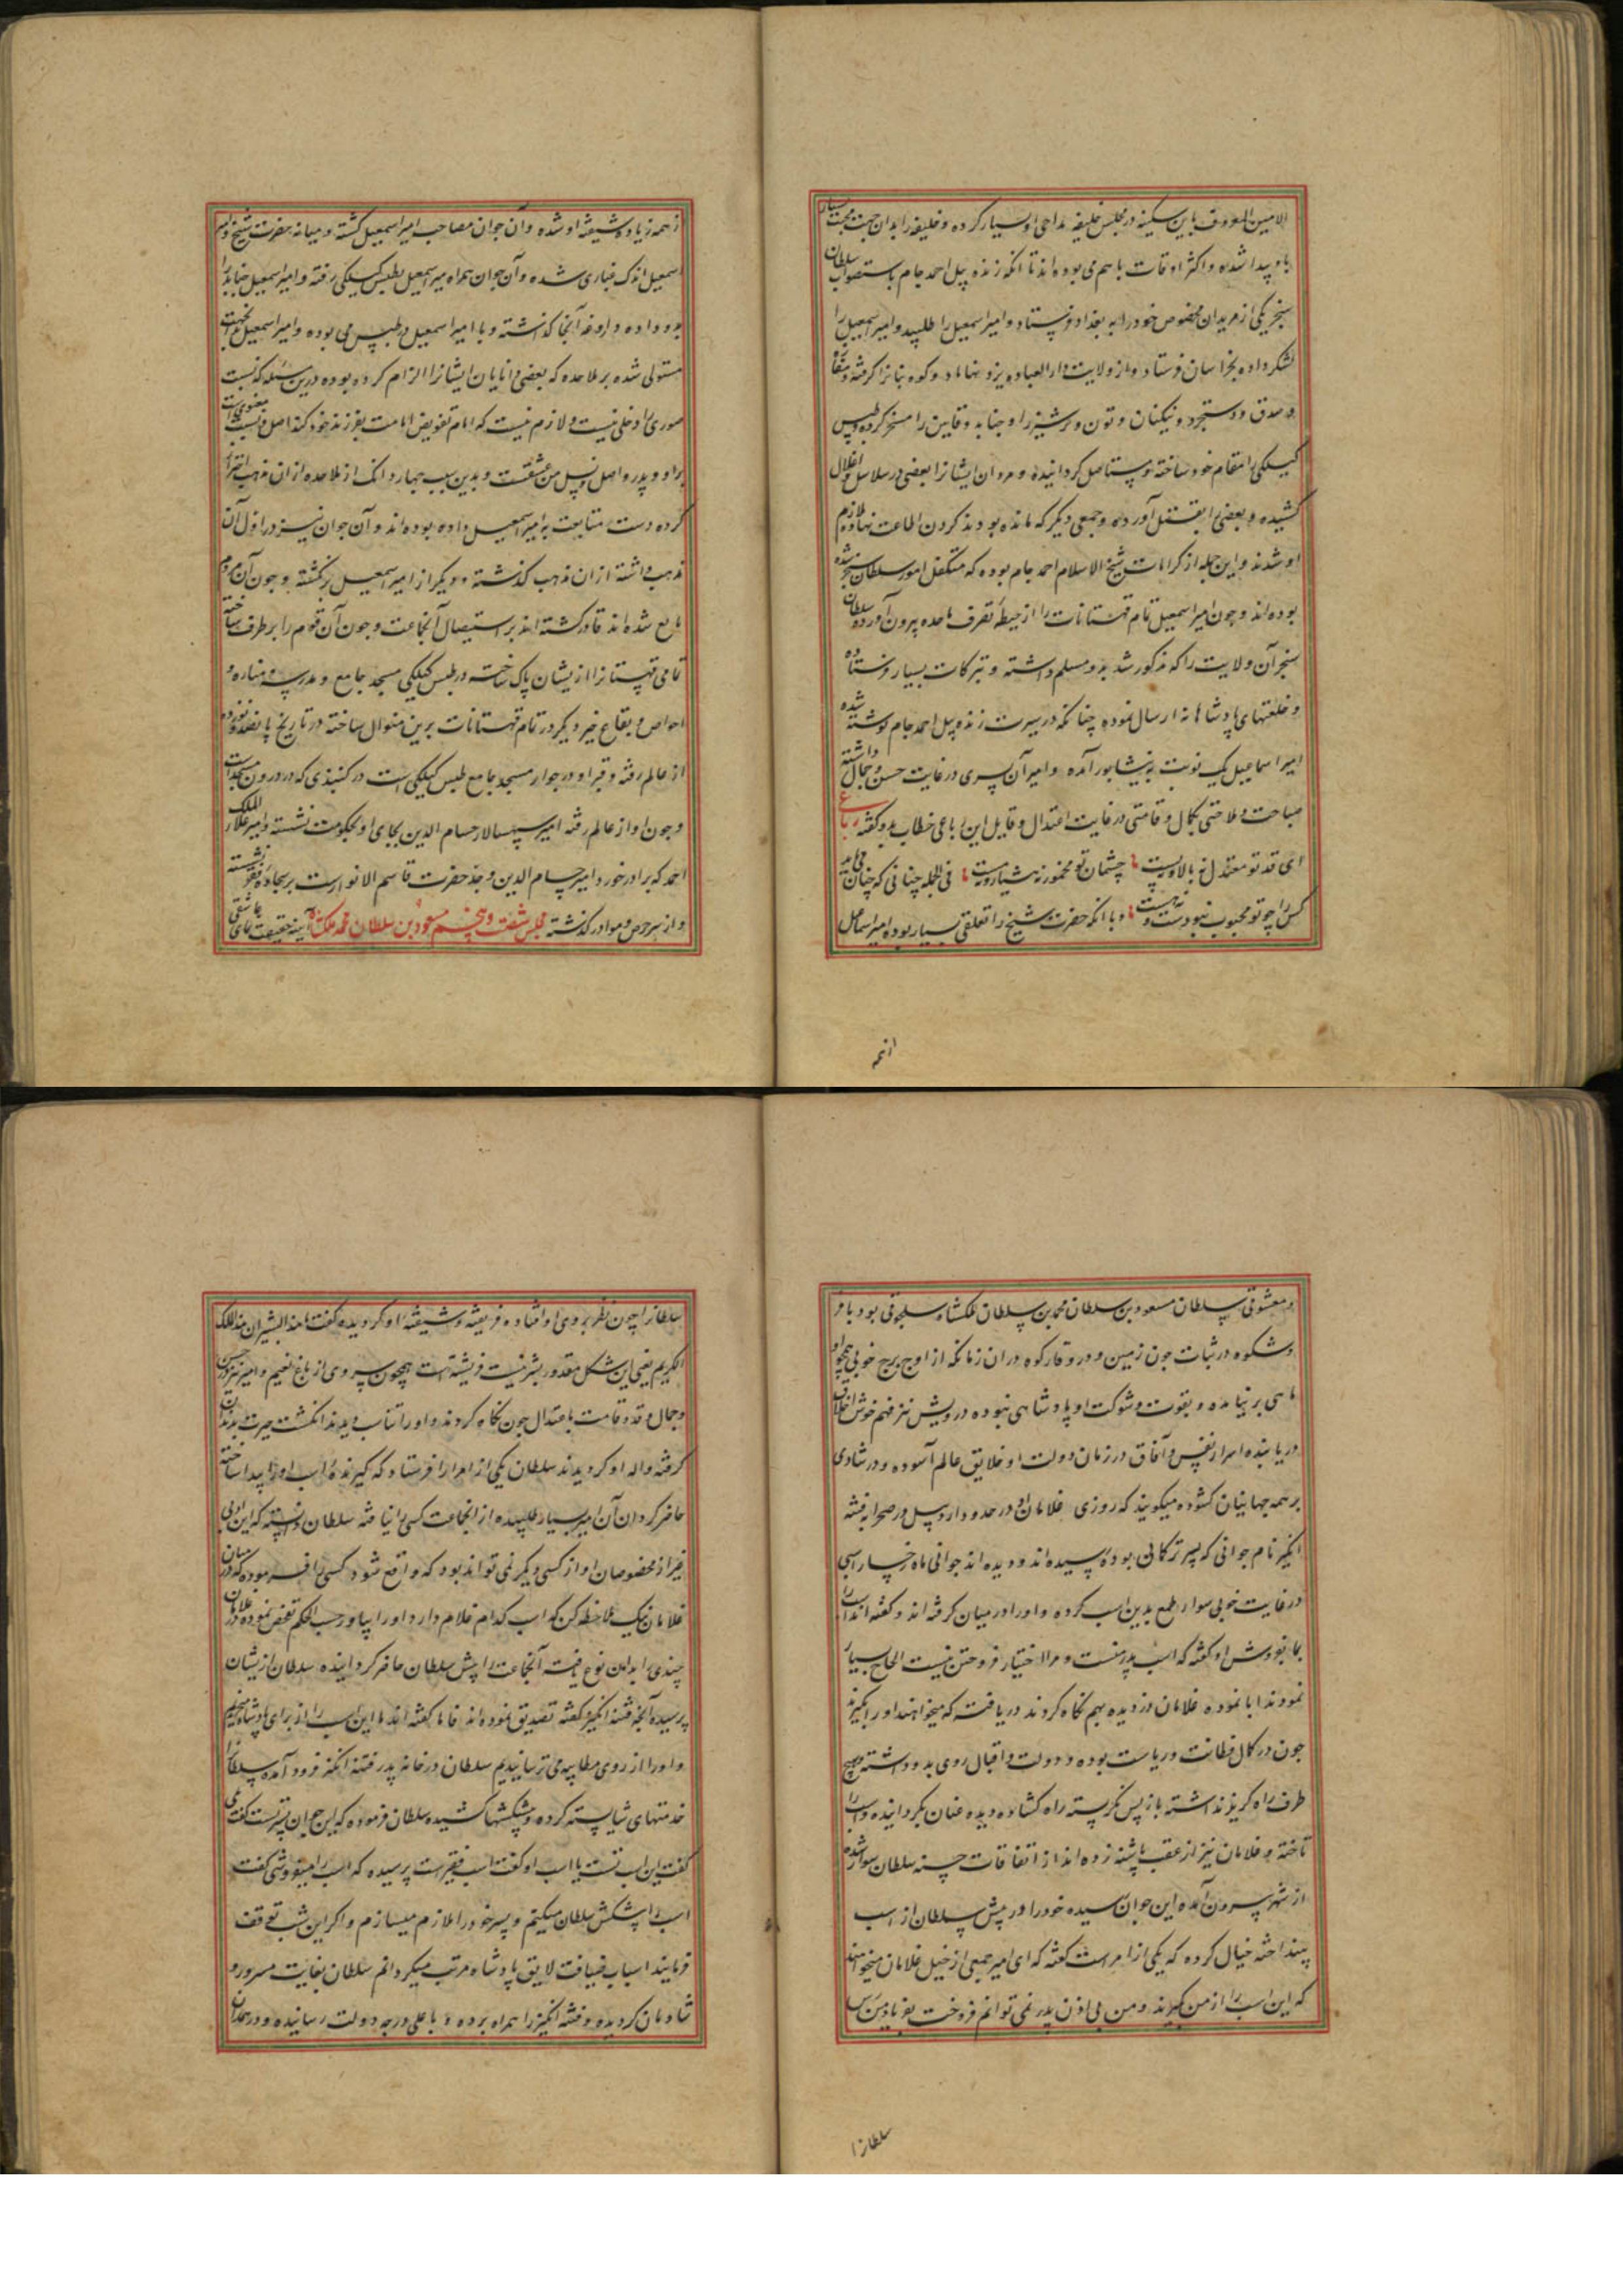 الامین المعروف باین سکینه در مجلس خلیفه مداحی او بسیار کرده و خلیفه را بدان جهت محبت بسیار
باو پیدا شده و اکثر اوقات باهم می بوده اند تا آنکه زنده پیل احمد جام باستصواب سلطان
سنجر یکی از مریدان مخصوص خود را به بغداد فرستاد و امیر اسمعیل را طلبید و امیر اسمعیل را
لشکر داده بخراسان فرستاد و از ولایت دار العباده یزد و کوه بنانرا گرفته
و دستجرد و نیکنان و تون و ترشیز را و جنابد و قاین را مسخر کرده و طبس
کیلکی را مقام خود ساخته و مستاصل گردانیده و مردان ایشانرا بعضی در سلاسل و اغلال
کشیده و بعضی را بقتل آورده و جمعی دیگر که مانده بودند گردن اطاعت نهاده و ملازم
او شدند و این جمله از کرامات شیخ الاسلام احمد جام بوده که متکفل امور سلطان سنجر شده
بوده اند و چون امیر اسمعیل تمام قهستانات را از حیطه تصرف ملاحده بیرون آورده سلطان
سنجر آن ولایت را که مذکور شد بدو مسلم داشته و تبرکات بسیار فرستاده
و خلعتهای پادشاهانه ارسال نموده چنانکه در سیرت زنده پیل احمد جام نوشته شده
امیر اسماعیل یک نوبت به نیشابور آمده و امیر آن پسری در غایت حسن و جمال داشته
صباحت و ملاحتی بکمال و قامتی در غایت اعتدال و قابل این رباعی خطاب بدو گفته رباعی
ای قد تو معتدل نه بالا و نه پست چشمان تو مخمور نه هشیار و نه مست فی الجمله چنانی که چنان می باید
کس را چو تو محبوب نبودست و نه هست و با آنکه حضرت شیخ را تعلقی بسیار بوده امیر اسماعیل
ازهمه
ازهمه زیاده شیفته او شده و آن جوان مصاحب امیر اسمعیل گشته و میانه حضرت شیخ و امیر
اسمعیل اندک غباری شده و آن جوان همراه میر اسمعیل بطبس کیلکی رفته و امیر اسمعیل جنابد را
بدو داده و داروغه آنجا گذاشته و با امیر اسمعیل در طبس می بوده و امیر اسمعیل بدانجهت
مستولی شده بر ملاحده که بعضی دانایان ایشانرا الزام کرده بوده درین مسئله که نسبت
صوری را دخلی نیست و لازم نیست که امام تفویض امامت بفرزند خود کند اصل نسبت معنوی است
برادر و پدر و اصل و نسل من عشقست و بدین سبب چهار دانگ از ملاحده ازان مذهب تبرا
کرده دست متابعت به امیر اسمعیل داده بوده اند و آن جوان نیز در اول آن
مذهب داشته ازان مذهب گذشته و دیگر از امیر اسمعیل برنگشته و چون آن مردم
تابع شده اند قادر گشته اند بر استیصال آنجماعت و چون آن قوم را برطرف ساخته
تمامی قهستانرا ازیشان پاک ساخته در طبس کیلکی مسجد جامع و مدرسه و مناره و
احواض و بقاع خیر دیگر در تمام قهستانات برین منوال ساخته در تاریخ پانصد و
از عالم رفته و قبر او در جوار مسجد جامع طبس کیلکی است در گنبدی که در درون مسجد است
و چون او از عالم رفته امیر سپهسالار حسام الدین بجای او بحکومت نشسته و امیر علاء الملک
احمد که برادر خورد امیر حسام الدین و جد حضرت قاسم الانوارست بر سجاده فقر نشسته
و از سر حرص و هوا در گذشته مجلس شصت و پنجم مسعود بن سلطان محمد ملکشاه آیینه حقیقت نمای عاشقی
و معشوقی سلطان مسعود بن سلطان محمد بن سلطان ملکشاه سلجوقی بود با فر
و شکوه در ثبات چون زمین و در وقار کوه دران زمانکه از اوج برج خوبی همچو او
ماهی بر نیامده و بقوت و شوکت او پادشاهی نبوده درویش نیز فهم خوش اخلاق
دریابنده اسرار انفس و آفاق در زمان دولت او خلایق عالم آسوده و در شادی
بر همه جهانیان گشوده میگویند که روزی غلامان او در حدود دار وسل در صحرا به فتنه
انگیز نام جوانی که پسر ترکمانی بوده رسیده اند و دیده اند جوانی ماه رخسار اسبی
در غایت خوبی سوار طمع بدین اسب کرده و او را در میان گرفته اند و گفته اند اسب را
بما بفروش او گفته که اسب پدر منست و مرا اختیار فروختن نیست الحاح بسیار
نمودند ابا نموده غلامان دزدیده بهم نگاه کردند دریافت که میخواهند او را بگیرند
چون در کمال فطانت و ریاست بوده و دولت و اقبال روی بدو داشته هیچ
طرف راه گریز نداشته باز پس نگریسته راه گشاده دیده عنان بگردانیده و اسب را
تاخته و غلامان نیز از عقب پاشنه زده اند از اتفاقات حسنه سلطان سوار شده
از شهر بیرون آمده این جوان رسیده خود را در پیش سلطان از اسب
بینداخته خیال کرده که یکی از امراست گفته که ای امیر جمعی از خیل غلامان میخواهند
که این اسب را از من بگیرند و من بی اذن پدر نمی توانم فروخت بفریاد من رس
سلطانرا
سلطانرا چون نظر بر وی افتاده فریفته و شیفته او گردیده گفت ما هذا البشر ان هذا ملک
الکریم یعنی این شکل مقدور بشر نیست فرشته است همچون سروی از باغ نعیم و امیر نیز در حسن
و جمال و قد و قامت باعتدال چون نگاه کردند و او را آفتاب دیدند انگشت حیرت بدندان
گرفته واله او گردیدند سلطان یکی از امرا را فرستاد که گیرنده اسب او را پیدا ساخته
حاضر گردان آن امیر بسیار طلبیده از انجماعت کسی را نیافته سلطان دانسته که این
غیر از مخصوصان او از کسی دیگر نمی تواند بود که واقع شود کسی را فرموده که در میان
غلامان نیک ملاحظه کن که اسب کدام غلام دارد او را بیاور حسب الحکم تفحص نموده
چندی را بدین نوع یافت آنجماعت را پیش سلطان حاضر گردانیده سلطان ازیشان
پرسیده آنچه فتنه انگیز گفته تصدیق نموده اند فاما گفته اند ما این اسب را از برای پادشاه میخواستیم
و او را از روی مطایبه می ترسانیدیم سلطان در خانه پدر فتنه انگیز فرود آمده سلطانرا
خدمتهای شایسته کرده و پیشکشها کشیده سلطان فرموده که این جوان پسر تست گفت بلی
گفت این اسب تست یا اسب او گفت اسب فقیرست پرسیده که اسب را میفروشی گفت
اسب را پیشکش سلطان میکنم و پسر خود را ملازم میسازم و اگر این شب توقف
فرمایند اسباب ضیافت لایق پادشاه مرتب میگردانم سلطان بغایت مسرور و
شادمان گردیده و فتنه انگیز را همراه برده و باعلی درجه دولت رسانیده و در همدان